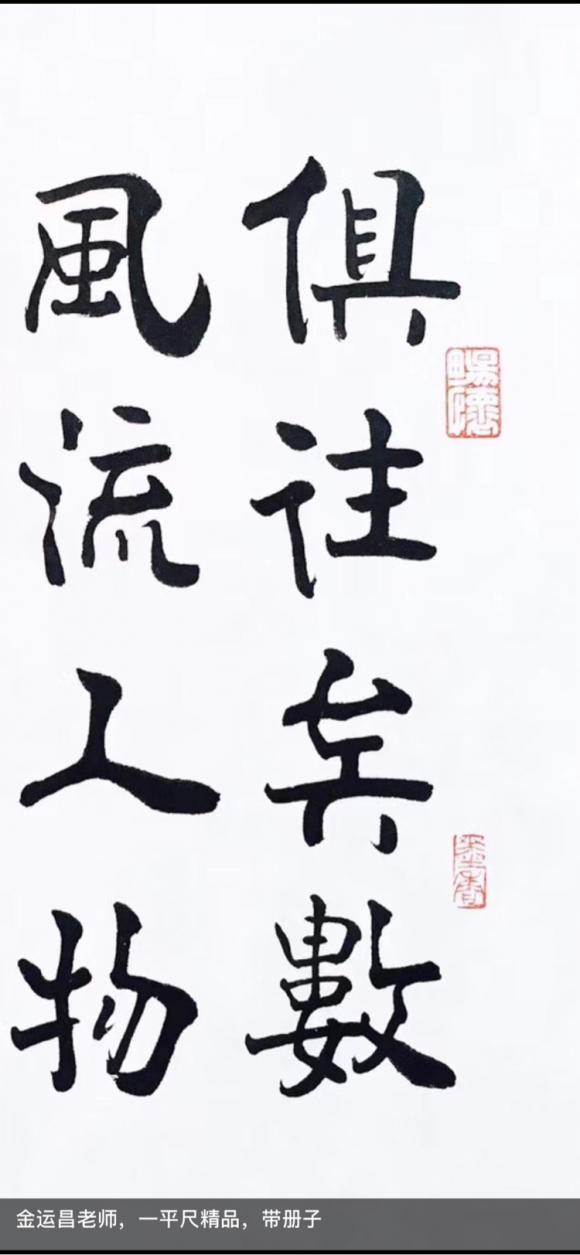 俱往矣數
風流人物
暢懷
墨香
金运昌老师，一平尺精品，带册子